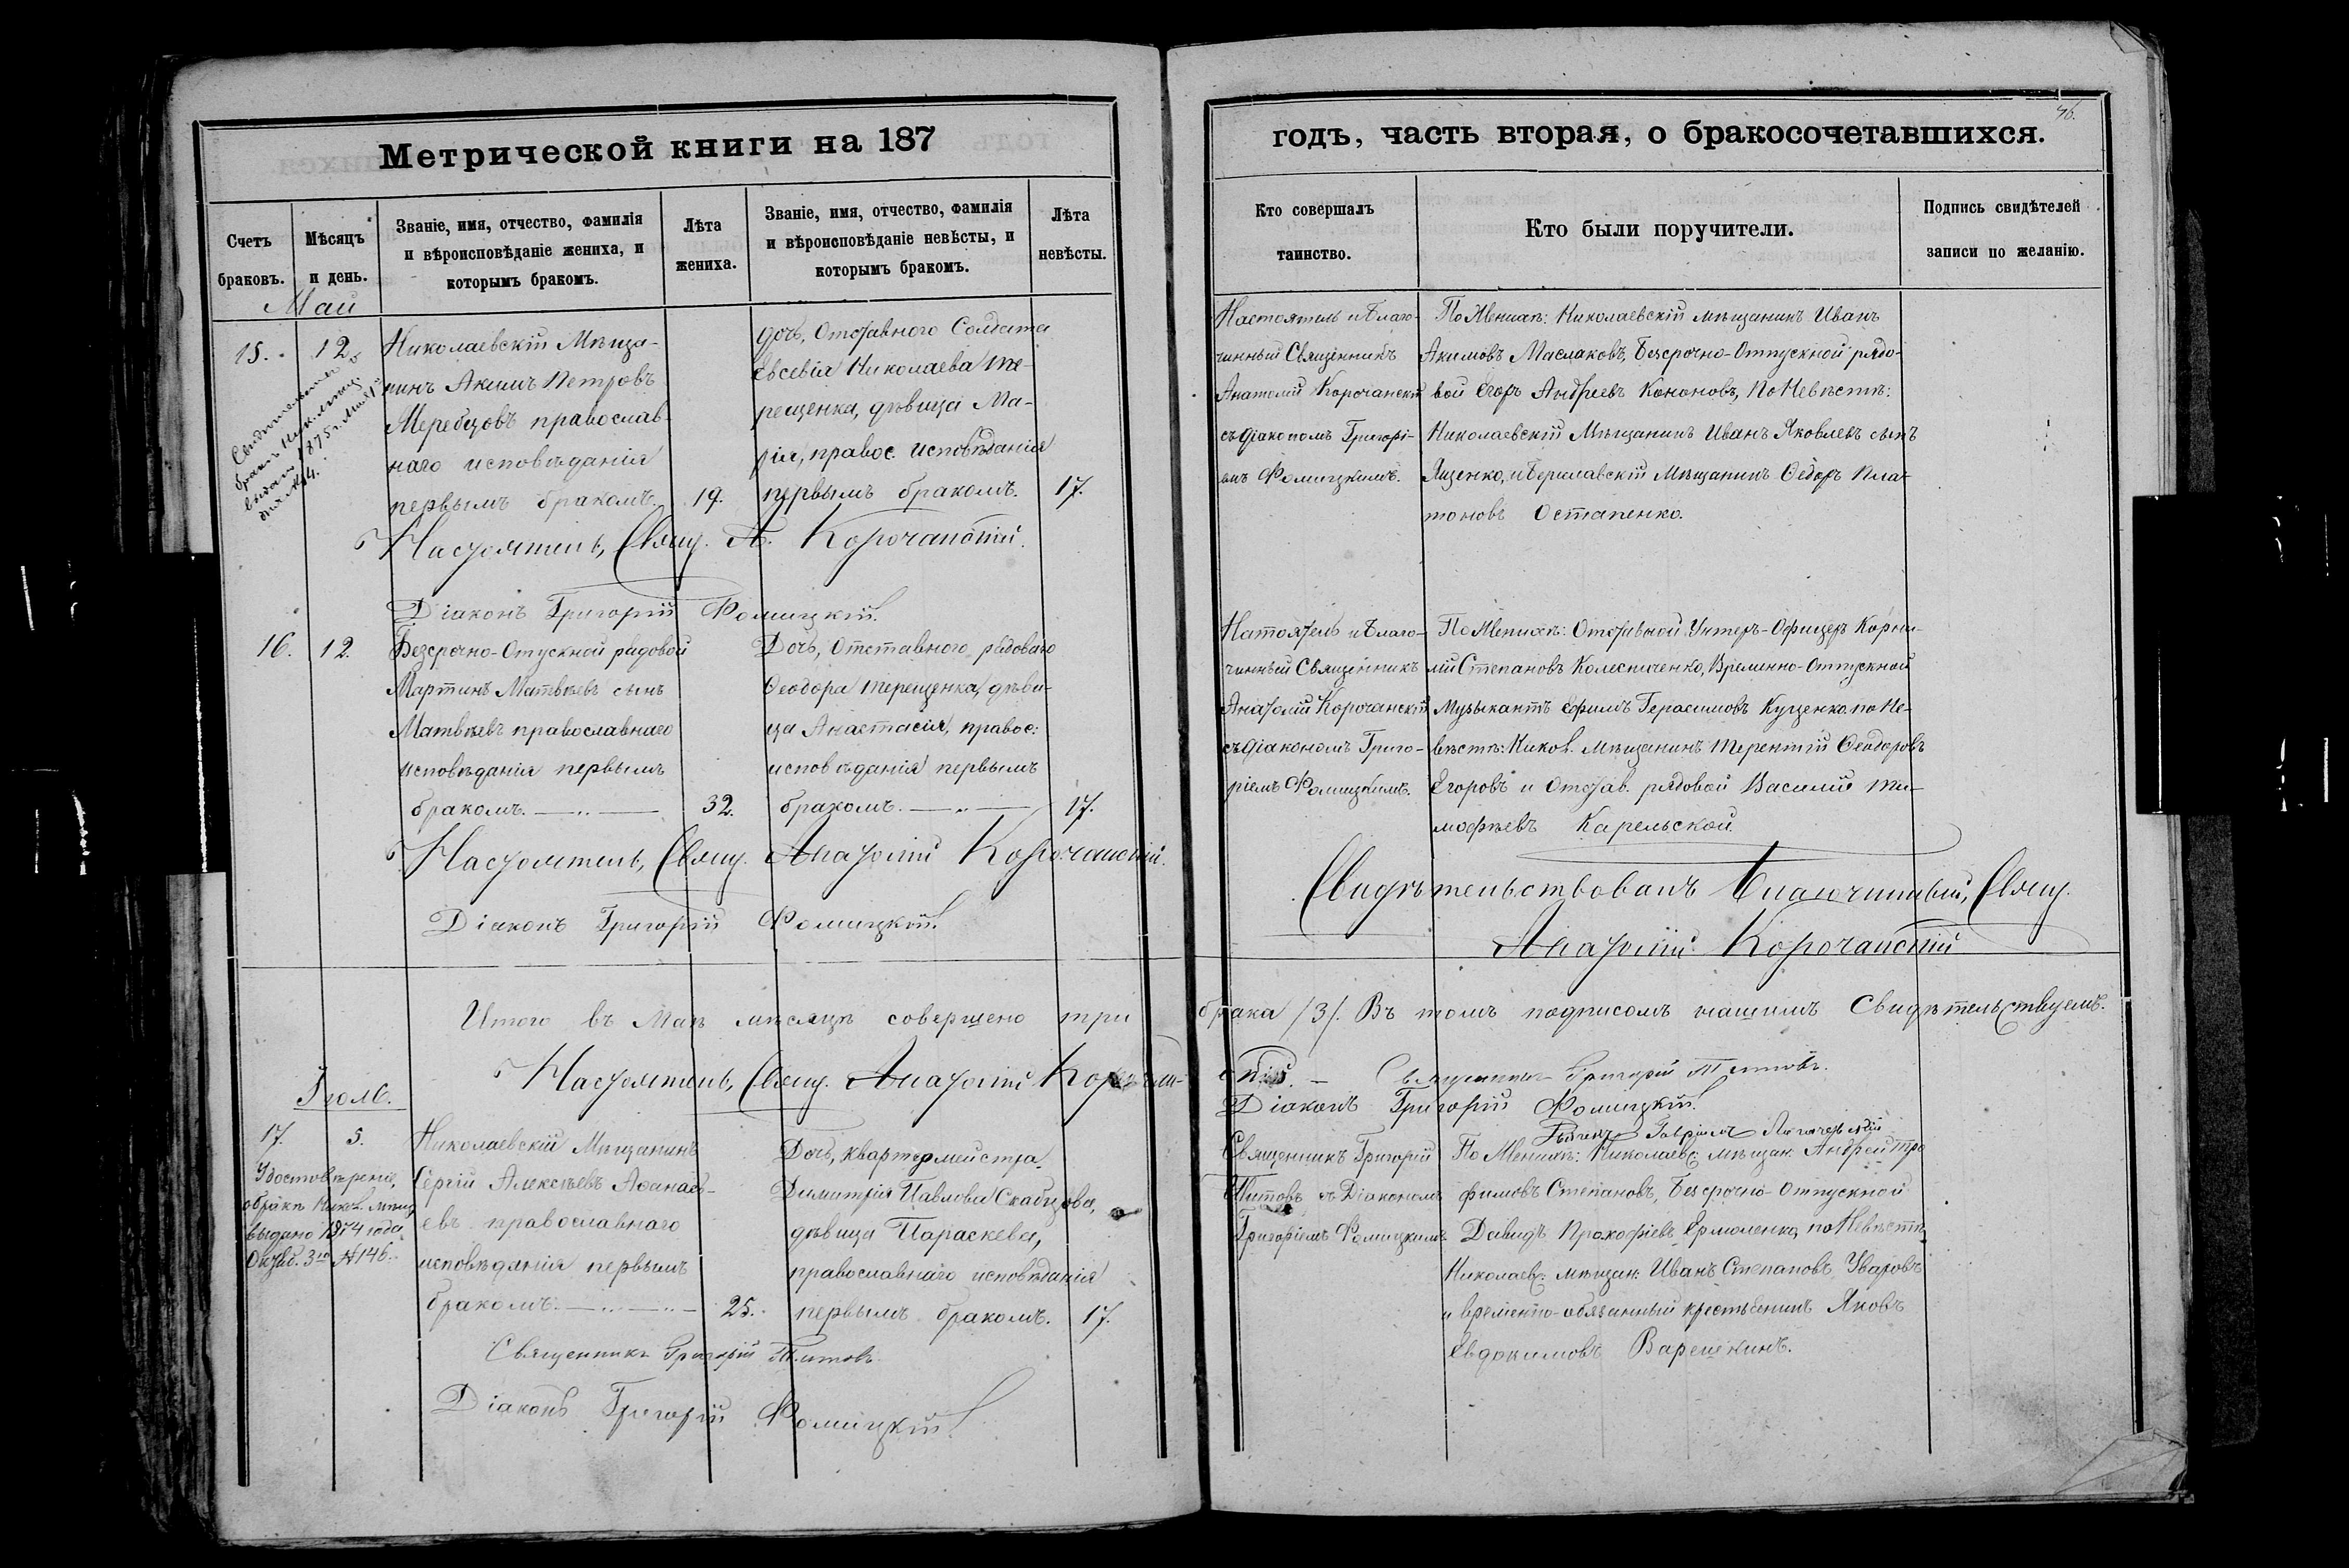 Метрической книги на 187
годъ, часть вторая, о бракосочетавшихся.
46.
Счетъ браковъ.
Мѣсяцъ и день.
Званіе, имя, отчество, фамилія
и вѣроисповѣданіе жениха, и
которымъ бракомъ.
Лѣта
жениха.
Званіе, имя, отчество, фамилія
и вѣроисповѣданіе невѣсты, и
которымъ бракомъ.
Лѣта
невѣсты.
Кто совершалъ
таинство.
Кто были поручители.
Подпись свидѣтелей
записи по желанію.
Май
15.
12.
выдано 1875 г. Мая
Николаевскій Мѣща-
нинъ Акимъ Петровъ
Меребцовъ православ-
наго исповѣданія
первымъ бракомъ.
19.
дочь, Отставного Солдата
Евсевія Николаева Те-
рещенка, дѣвица Ма-
рія, правос. исповѣданія
первымъ бракомъ.
17.
Настоятель и Благо-
чинный Священникъ
Анатолій Корочанскій
съ Діакономъ Григорі-
емъ Фомицкимъ.
По Женихѣ: Николаевскій мѣщанинъ Иванъ
Акимовъ Маслаковъ, Безсрочно-Отпускной рядо-
вой Егоръ Андреевъ Кононовъ, По Невѣстѣ:
Николаевскій Мѣщанинъ Иванъ Яковлевъ сынъ
Яценко, и Бериславскій Мѣщанинъ Ѳедоръ Пла-
тоновъ Остапенко.
Настоятель, Свящ. А. Корочанскій.
Діаконъ Григорій Фомицкій.
16.
12.
Безсрочно-Отускной рядовой
Мартинъ Матвѣевъ сынъ
Матвѣевъ православнаго
исповѣданія первымъ
бракомъ.
32.
Дочь, Отставного рядоваго
Ѳеодора Терещенка, дѣви-
ца Анастасія, правос:
исповѣданія первымъ
бракомъ.
17.
Натоятель и Благо-
чинный Священникъ
Анатолій Корочанскій
съ Діакономъ Григо-
ріемъ Фомицкимъ.
По Женихѣ: Отставной Унтеръ-Офицеръ Корни-
лій Степановъ Колесниченко, Временно-Отпускной
Музыкантъ Ефимъ Герасимовъ Куценко. по Не-
вѣстѣ: Ников. Мѣщанинъ Терентій Ѳеодоровъ
Егоровъ и Отстав. рядовой Василій Ти-
мофѣевъ Карельской.
Настоятель, Свящ. Анатолій Корочанскій.
Діаконъ Григорій Фомицкій.
Свидѣтельствовалъ Благочинный, Свящ.
Анатолій Корочанскій
Итого въ Маѣ мѣсяцѣ совершено три
брака /3/. Въ томъ подписомъ нашимъ Свидѣтельствуемъ.
Настоятель, Свящ. Анатолій Корочан-
скій. — Священникъ Григорій Титовъ.
Діаконъ Григорій Фомицкій.
Іюль.
17.
5.
Удостовѣреніе,
о бракѣ Никол. мѣщ.
выдано 1874 года
Октяб. 3го №146.
Николаевскій Мѣщанинъ
Сергій Алексѣевъ Аѳанась-
евъ православнаго
исповѣданія первымъ
бракомъ.
25.
Дочь, квартермейстра
Димитрія Павлова Скабцова,
дѣвица Параскева,
православнаго исповѣданія
первымъ бракомъ.
17.
Священникъ Григорій
Титовъ съ Діакономъ
Григоріемъ Фомицкимъ
По Женихѣ: Николаевс: мѣщан: Андрей Тро
фимовъ Степановъ, Безсрочно-Отпускной
Давидъ Прокофіевъ Ермоленко, по Невѣстѣ,
Николаевс: мѣщан: Иванъ Степановъ Уваровъ
и временно-обязанный крестьянинъ Яковъ
Евдокимовъ Варешкинъ.
Священникъ Григорій Титовъ.
Діаконъ Григорій Фомицкій.